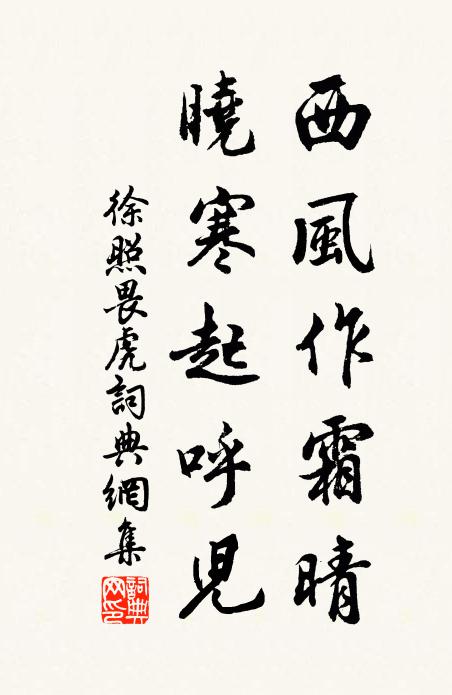 西風作霜晴
曉寒起呼児
徐照畏虎詞典網集
詞典网印